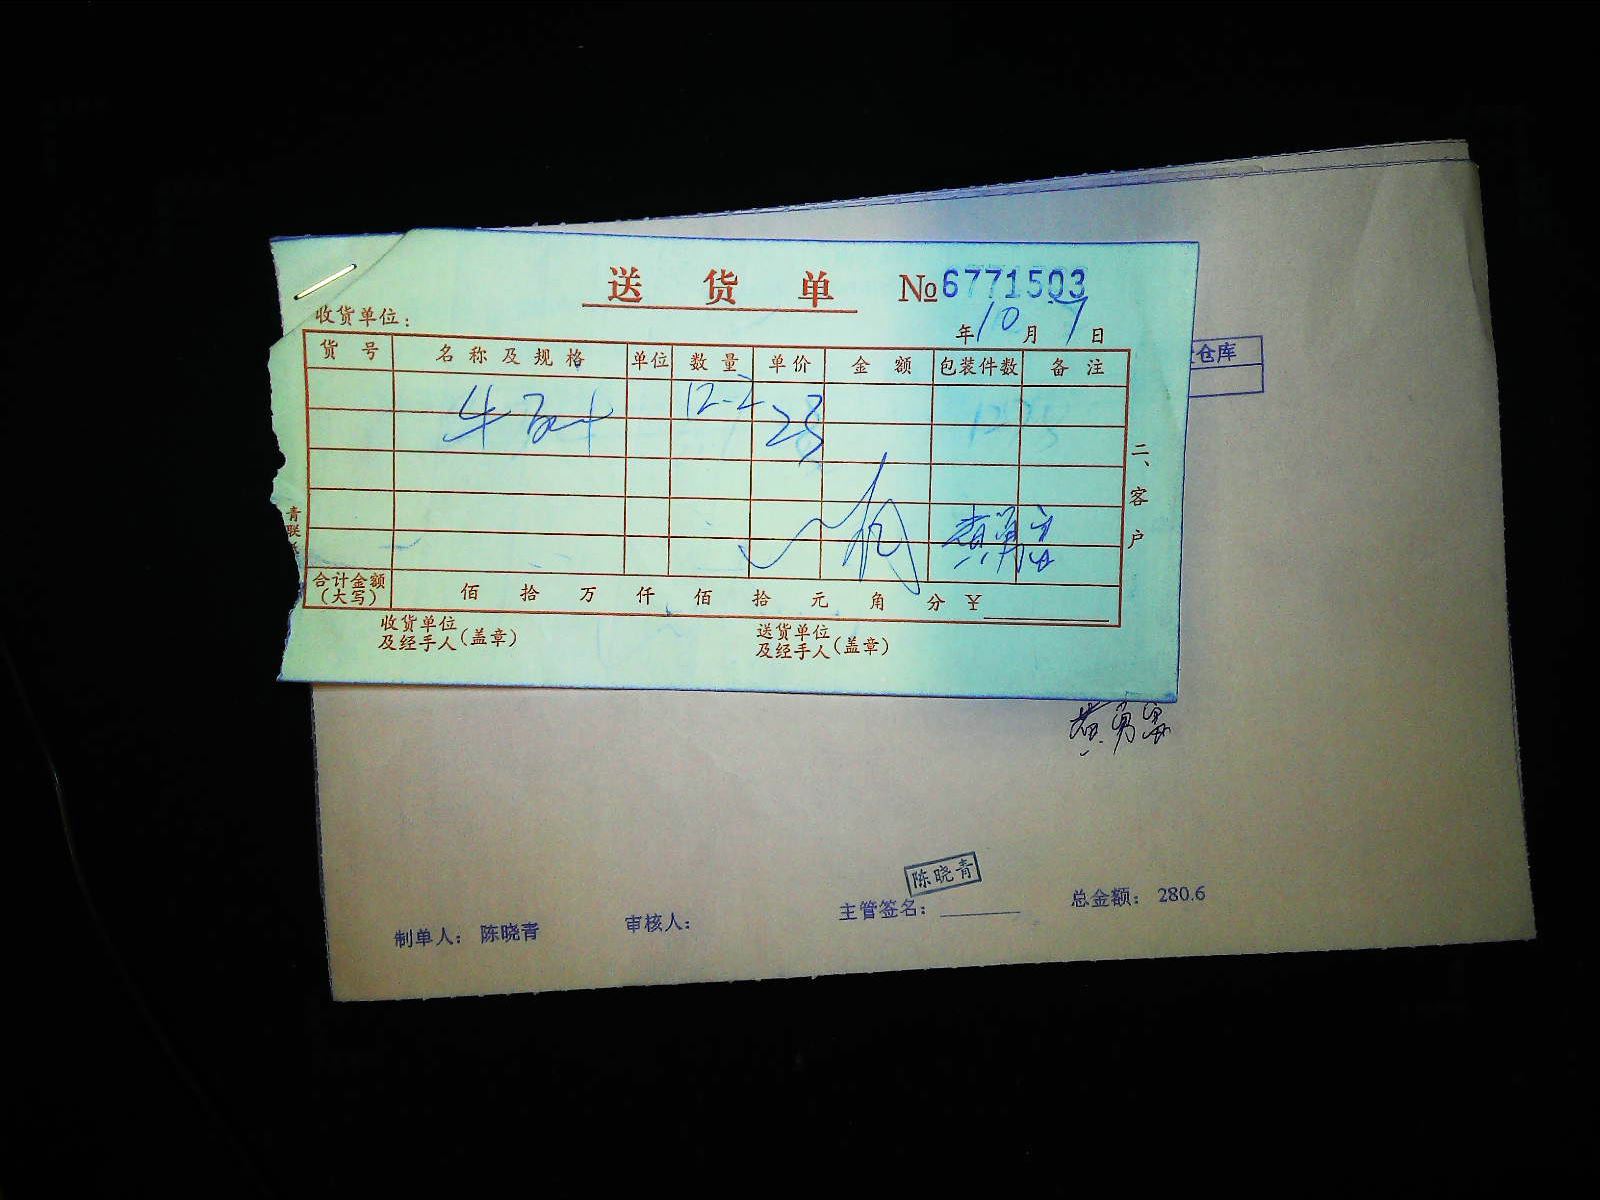 送货单 №6771503
收货单位：
年10月7日
货号 名称及规格 单位 数量 单价 金额 包装件数 备注
12-2 23
二、客户
青联
合计金额（大写） 佰 拾 万 仟 佰 拾 元 角 分 ¥
收货单位及经手人（盖章） 送货单位及经手人（盖章）
仓库
黄勇富
陈晓青
制单人： 陈晓青 审核人： 主管签名： 总金额： 280.6